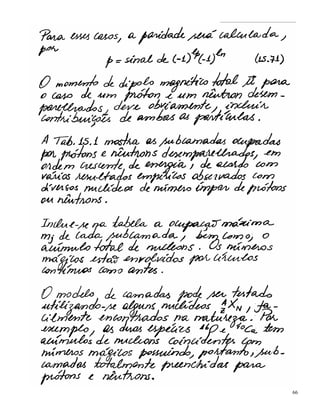 Para esses casos, a paridade será calculada,
por
p = sinal de (-1)^lp (-1)^ln (15.71)
O momento de dipolo magnético total μ para
o caso de um próton e um nêutron desem-
parelhados, deve obviamente, incluir
contribuições de ambas as partículas.
A Tab. 15.1 mostra as subcamadas ocupadas
por prótons e nêutrons desemparelhados, em
ordem crescente de energia, de acordo com
vários resultados empíricos observados com
diversos nuclídeos de número ímpar de prótons
ou nêutrons.
Inclue-se na tabela a ocupação máxima
mj de cada subcamada, bem como, o
acúmulo total de nucleons. Os números
mágicos estão envolvidos por círculos
contínuos como antes.
O modelo de camadas pode ser testado
utilizando-se alguns nuclídeos , fa-
cilmente encontrados na natureza. Por
exemplo, as duas espécies ¹⁶O e ⁴⁰Ca tem
acúmulos de nucleons coincidentes com
números mágicos possuindo, portanto, sub-
camadas totalmente preenchidas para
prótons e nêutrons.
66